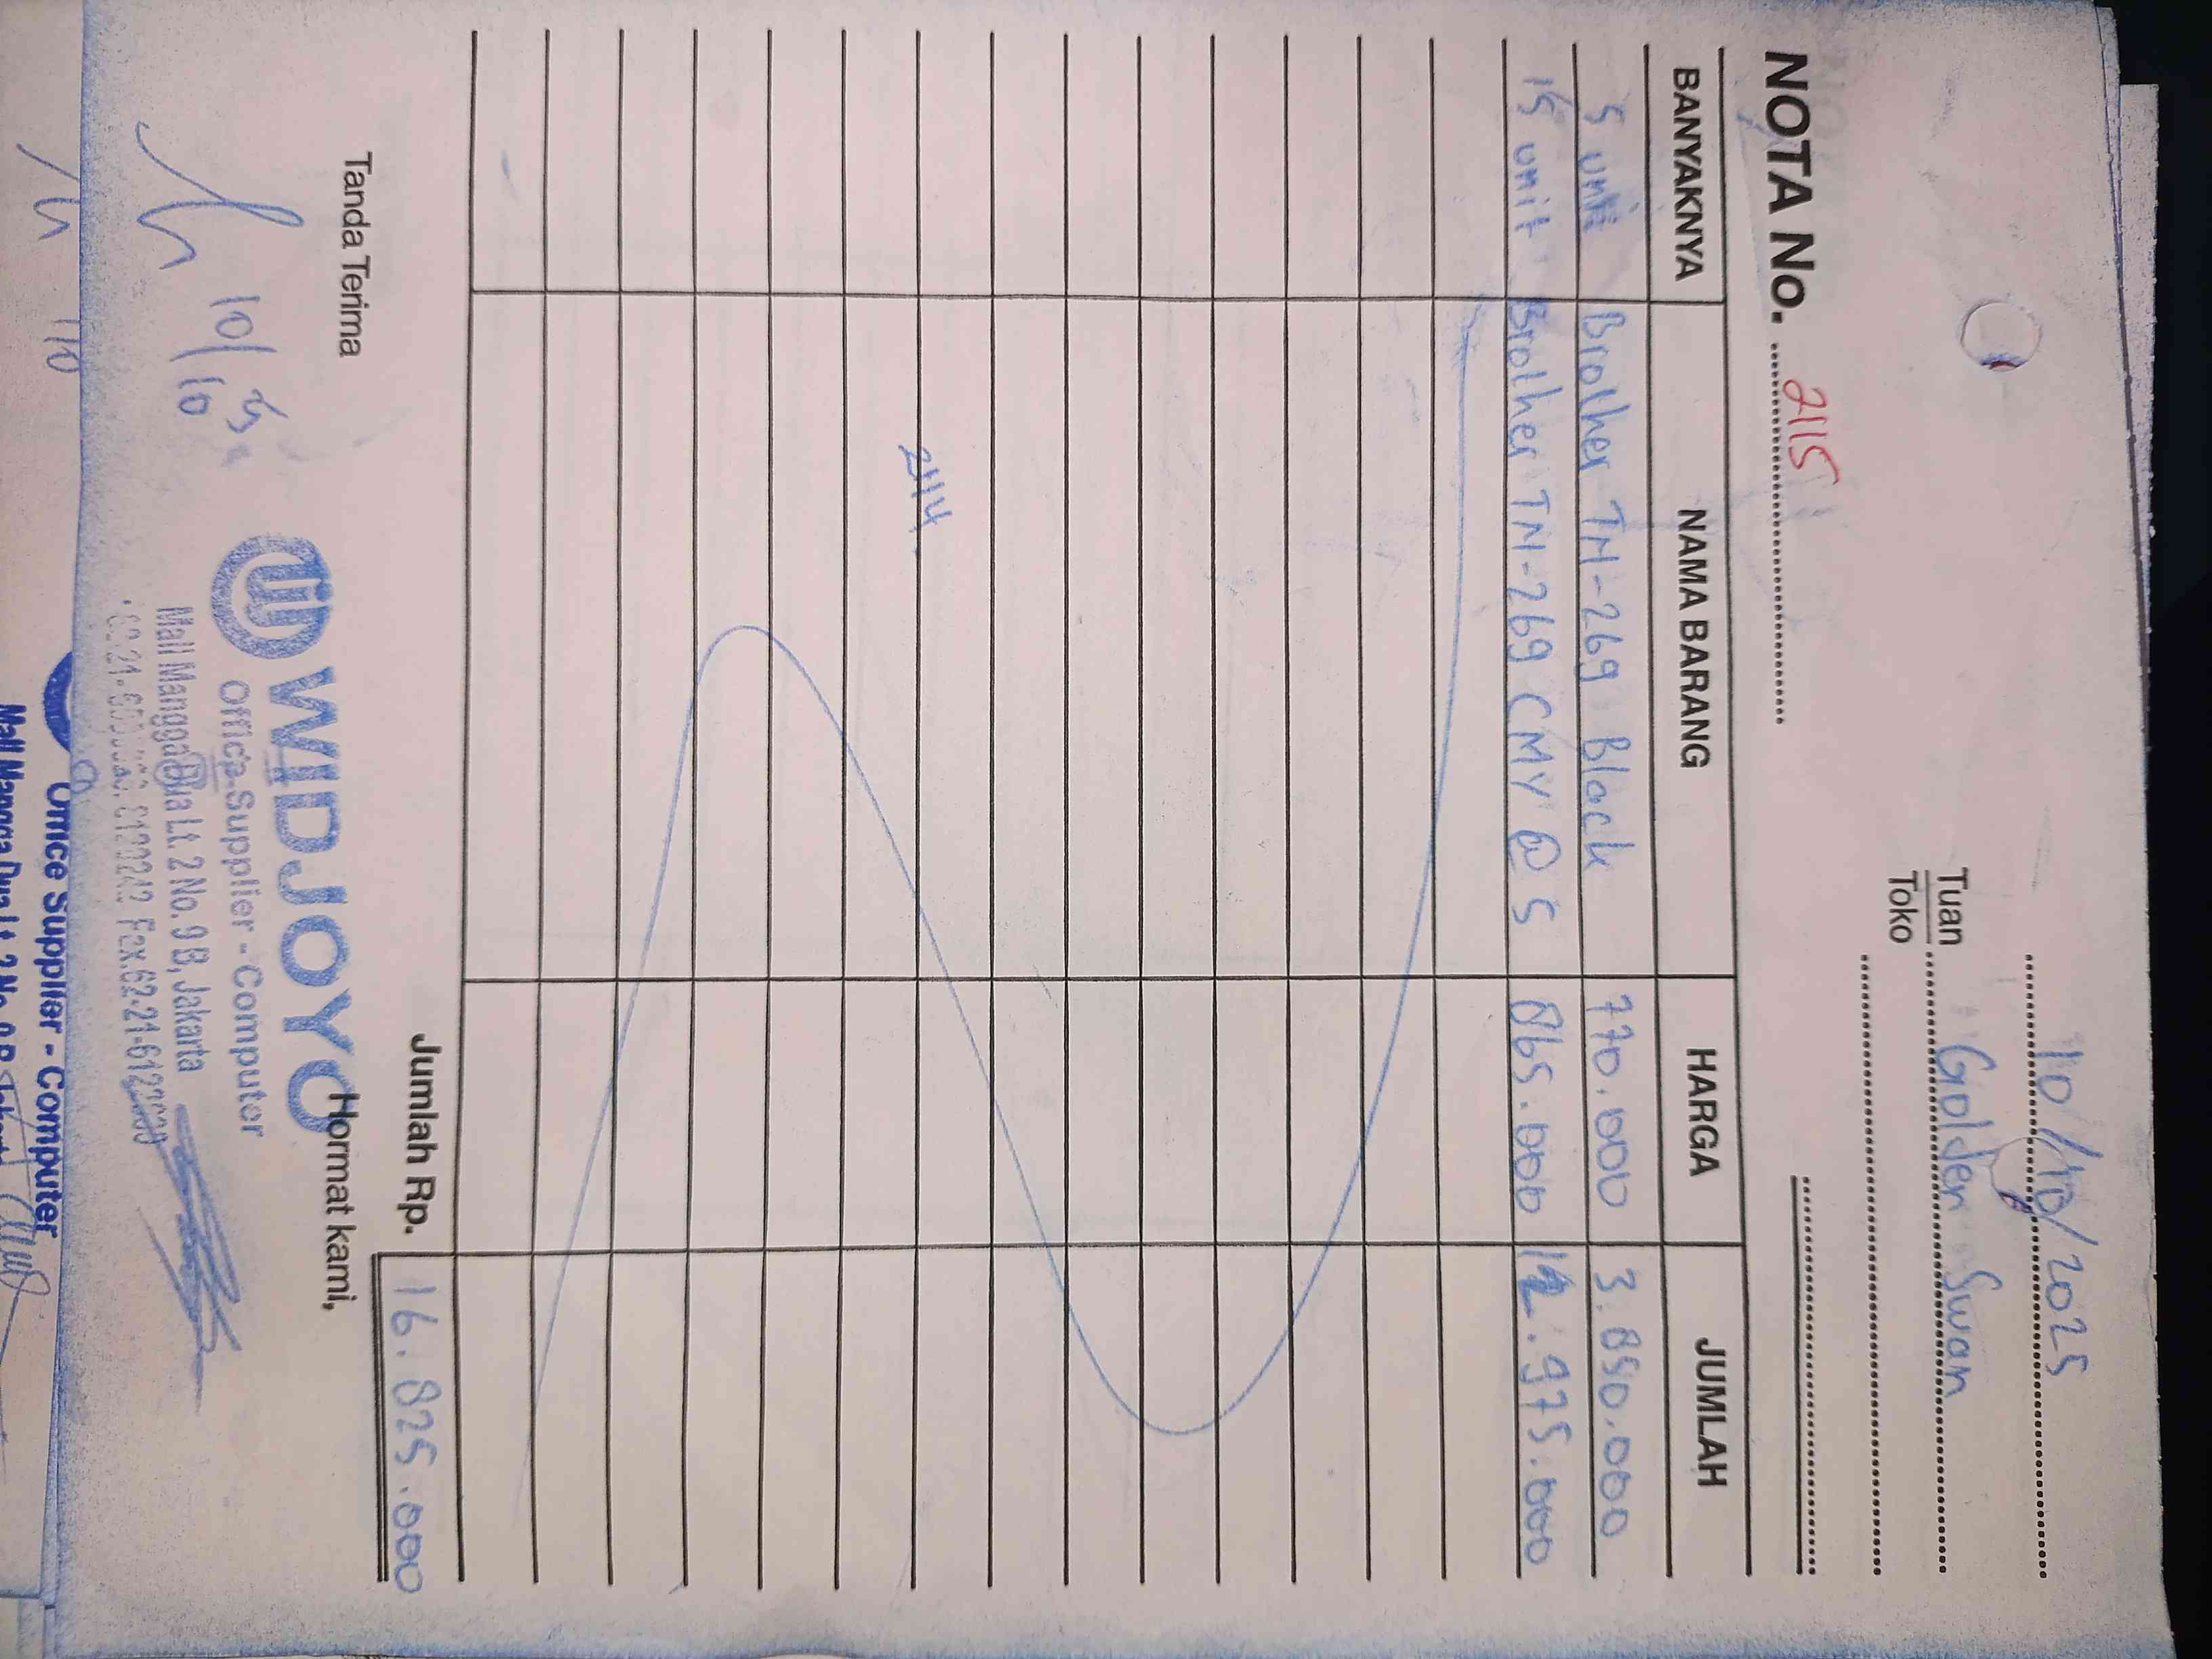 10/10/2025
Tuan Golden Swan
Toko
NOTA No. 2115
BANYAKNYA NAMA BARANG HARGA JUMLAH
5 unit Brother TN-269 Black 770.000 3.850.000
15 unit Brother TN-269 CMY @ 5 865.000 12.975.000
2114
Jumlah Rp. 16.825.000
Tanda Terima Hormat kami,
10/10
WIDJOYO
Office Supplier - Computer
Mall Mangga Dua Lt. 2 No. 9 B, Jakarta
Fax.62-21-6122000
Office Supplier - Computer
Mall Mangga Dua Lt. 2 No. 9 B